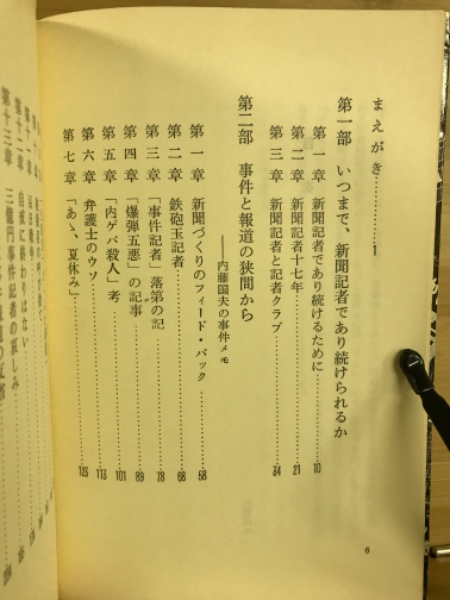 まえがき…………1
第一部 いつまで、新聞記者であり続けられるか
第一章 新聞記者であり続けるために…………10
第二章 新聞記者十七年…………21
第三章 新聞記者と記者クラブ…………34
第二部 事件と報道の狭間から
――内藤国夫の事件メモ
第一章 新聞づくりのフィード・バック…………58
第二章 鉄砲玉記者…………68
第三章 「事件記者」落第の記…………78
第四章 「爆弾五悪」の記事…………89
第五章 「内ゲバ殺人」考…………101
第六章 弁護士のウソ…………113
第七章 「あゝ、夏休み」…………125
6
第十二章 自戒に終わりはない
第十三章 三億円事件記者の哀しみ